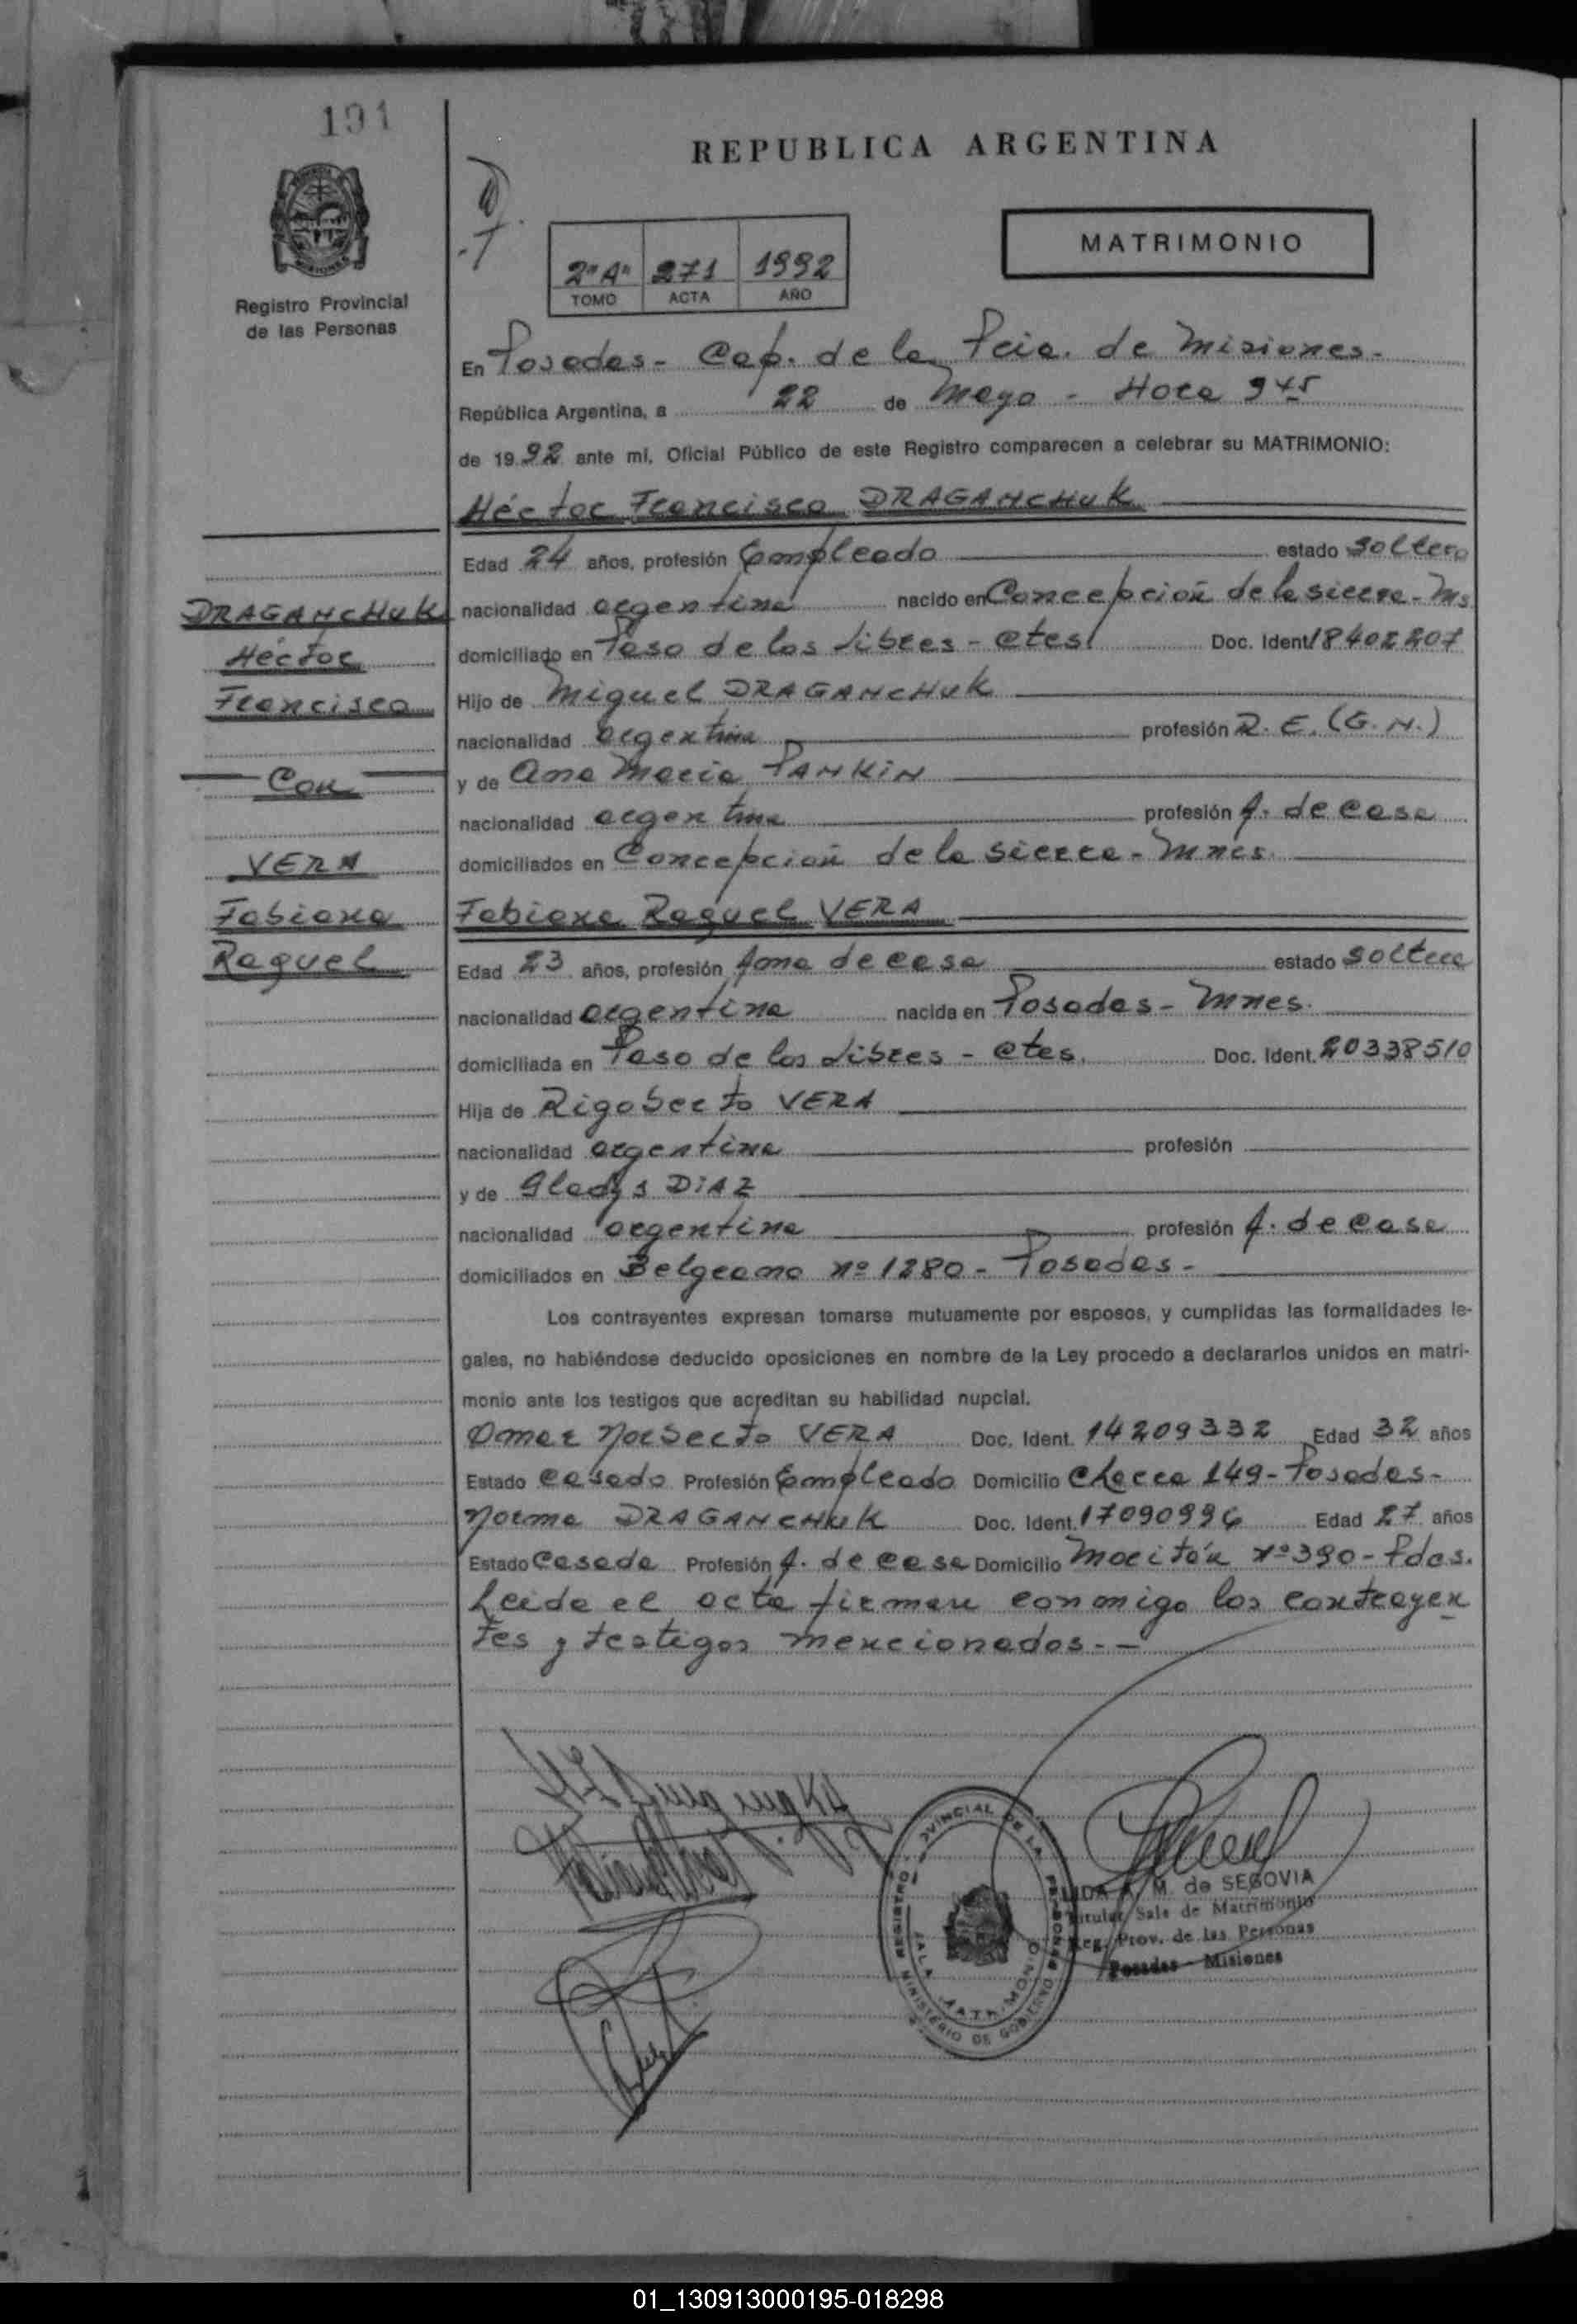 191
REPUBLICA ARGENTINA
Registro Provincial
de las Personas
2º"A" 271 1992
TOMO ACTA AÑO
MATRIMONIO
En Posadas - Cap. de la Pcia. de Misiones.
República Argentina, a 22 de Mayo - Hora 9 45
de 19 92 ante mí, Oficial Público de este Registro comparecen a celebrar su MATRIMONIO:
Héctor Francisco DRAGANCHUK
Edad 24 años, profesión Empleado estado soltero
DRAGANCHUK
Héctor
Francisco
Con
VERA
Fabiana
Raquel
nacionalidad argentina nacido en Concepción de la sierra - Ms
domiciliado en Paso de los Libres - Ctes. Doc. Ident. 18402207
Hijo de Miguel DRAGANCHUK
nacionalidad argentina profesión R. E. (G. N.)
y de Ana Maria PANKIN
nacionalidad argentina profesión A. de casa
domiciliados en Concepción de la sierra - Mnes.
Fabiana Raquel VERA
Edad 23 años, profesión Ama de casa estado soltera
nacionalidad argentina nacida en Posadas - Mnes.
domiciliada en Paso de los Libres - Ctes. Doc. Ident. 20338510
Hija de Rigoberto VERA
nacionalidad argentina profesión
y de Gladys DIAZ
nacionalidad argentina profesión A. de casa
domiciliados en Belgrano nº 1280 - Posadas -
Los contrayentes expresan tomarse mutuamente por esposos, y cumplidas las formalidades le-
gales, no habiéndose deducido oposiciones en nombre de la Ley procedo a declararlos unidos en matri-
monio ante los testigos que acreditan su habilidad nupcial.
Omar Norberto VERA Doc. Ident. 14209332 Edad 32 años
Estado Casado Profesión Empleado Domicilio Chacra 149 - Posadas -
Norma DRAGANCHUK Doc. Ident. 17090996 Edad 27 años
Estado Casada Profesión A. de casa Domicilio Moritán nº 390 - Pdas.
Leida el acta firman conmigo los contrayen
tes y testigos mencionados. -
REGISTRO PROVINCIAL DE LAS PERSONAS
SALA MATRIMONIO
MINISTERIO DE GOBIERNO
M. de SEGOVIA
Titular Sala de Matrimonio
Reg. Prov. de las Personas
Posadas - Misiones
01_130913000195-018298